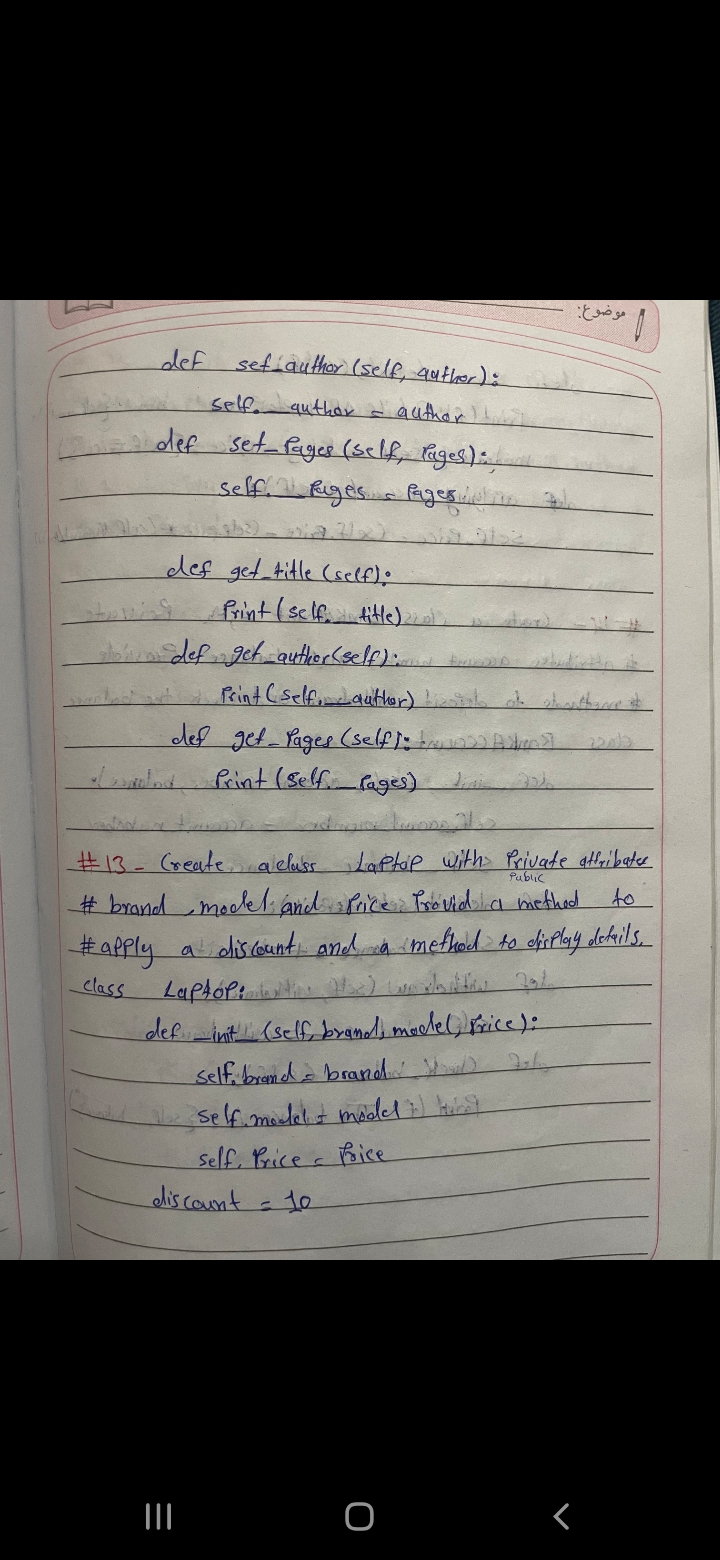 موضوع:
def set_author(self, author):
self.__author = author
def set_Pages(self, Pages):
self.__Pages = Pages
def get_title(self):
Print(self.__title)
def get_author(self):
Print(self.__author)
def get_Pages(self):
Print(self.__Pages)
#13- Create a class Laptop with Private attributes
Public
# brand, model and Price Provid a method to
# apply a discount and a method to display details.
class Laptop:
def __init__(self, brand, model, Price):
self.brand = brand
self.model = model
self.Price = Price
discount = 10